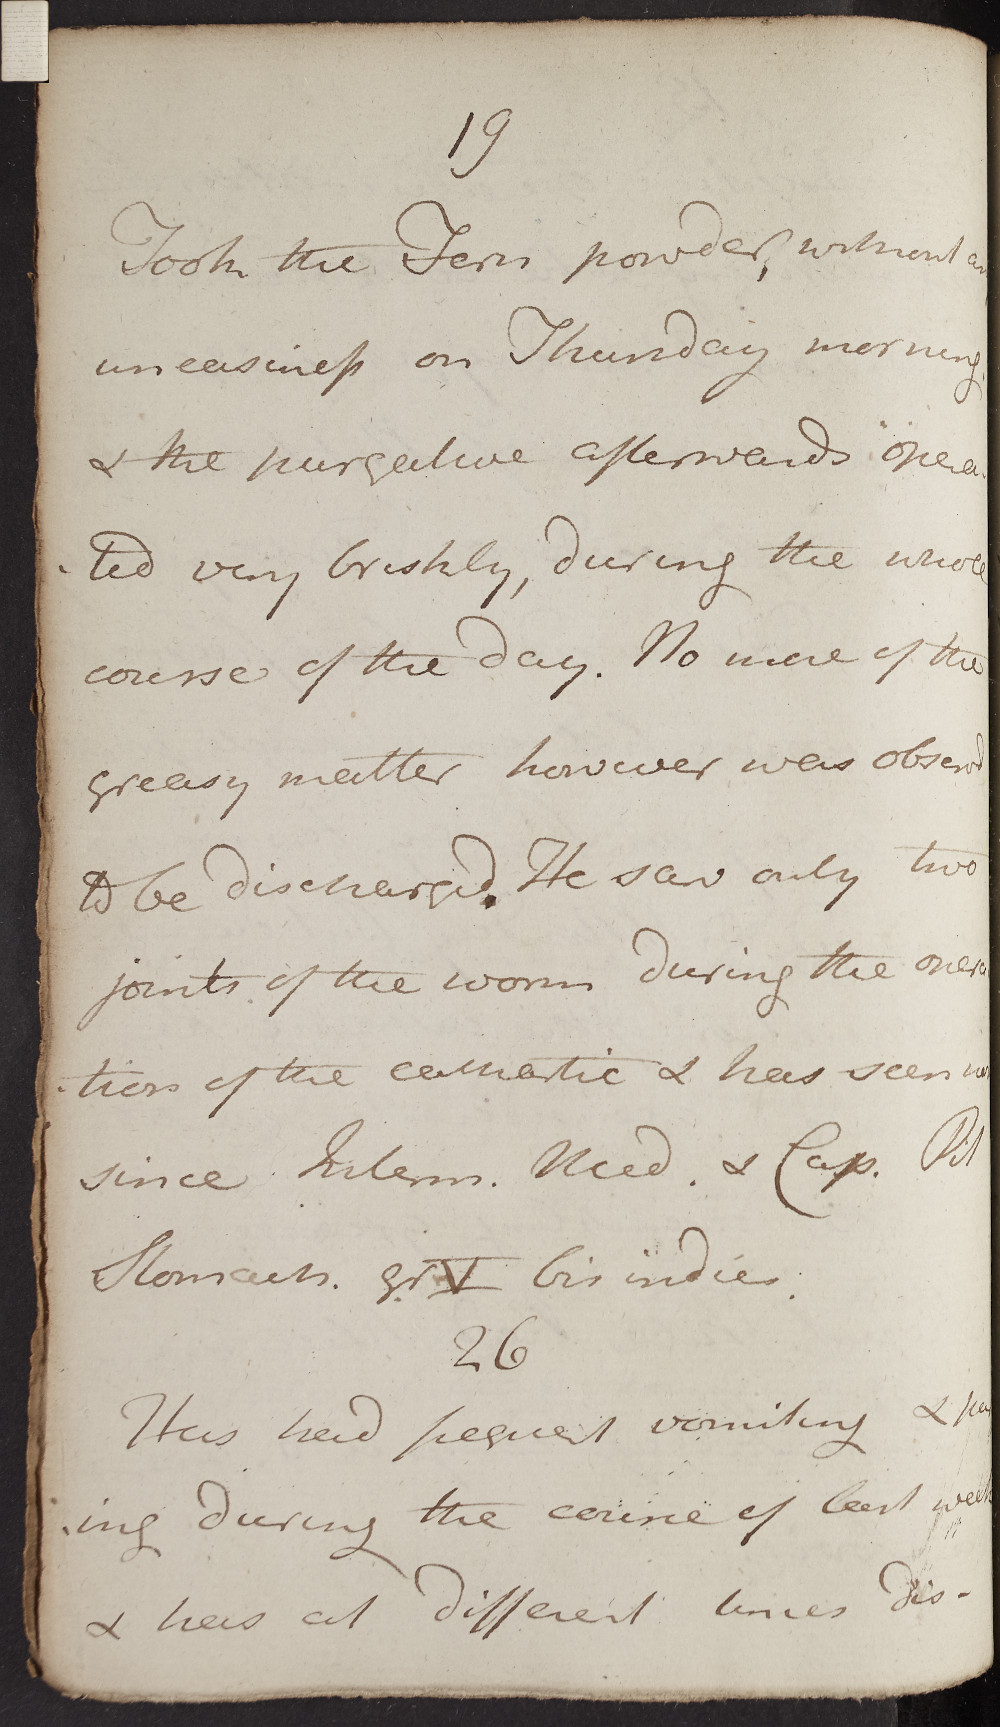 19
Took the Fern powder, without an
uneasiness on Thursday morning,
& the purgative afterwards opera
-ted very briskly, during the whole
course of the day. No more of the
greasy matter however was observd
to be discharged. He saw only two
joints of the worm during the opera
-tion of the cathartic & has seen
since Interm. Med. & Cap. Pil
Stomach. gr V bis indies.
26
Has had frequent vomiting &
-ing during the course of last week
& has at different times dis-